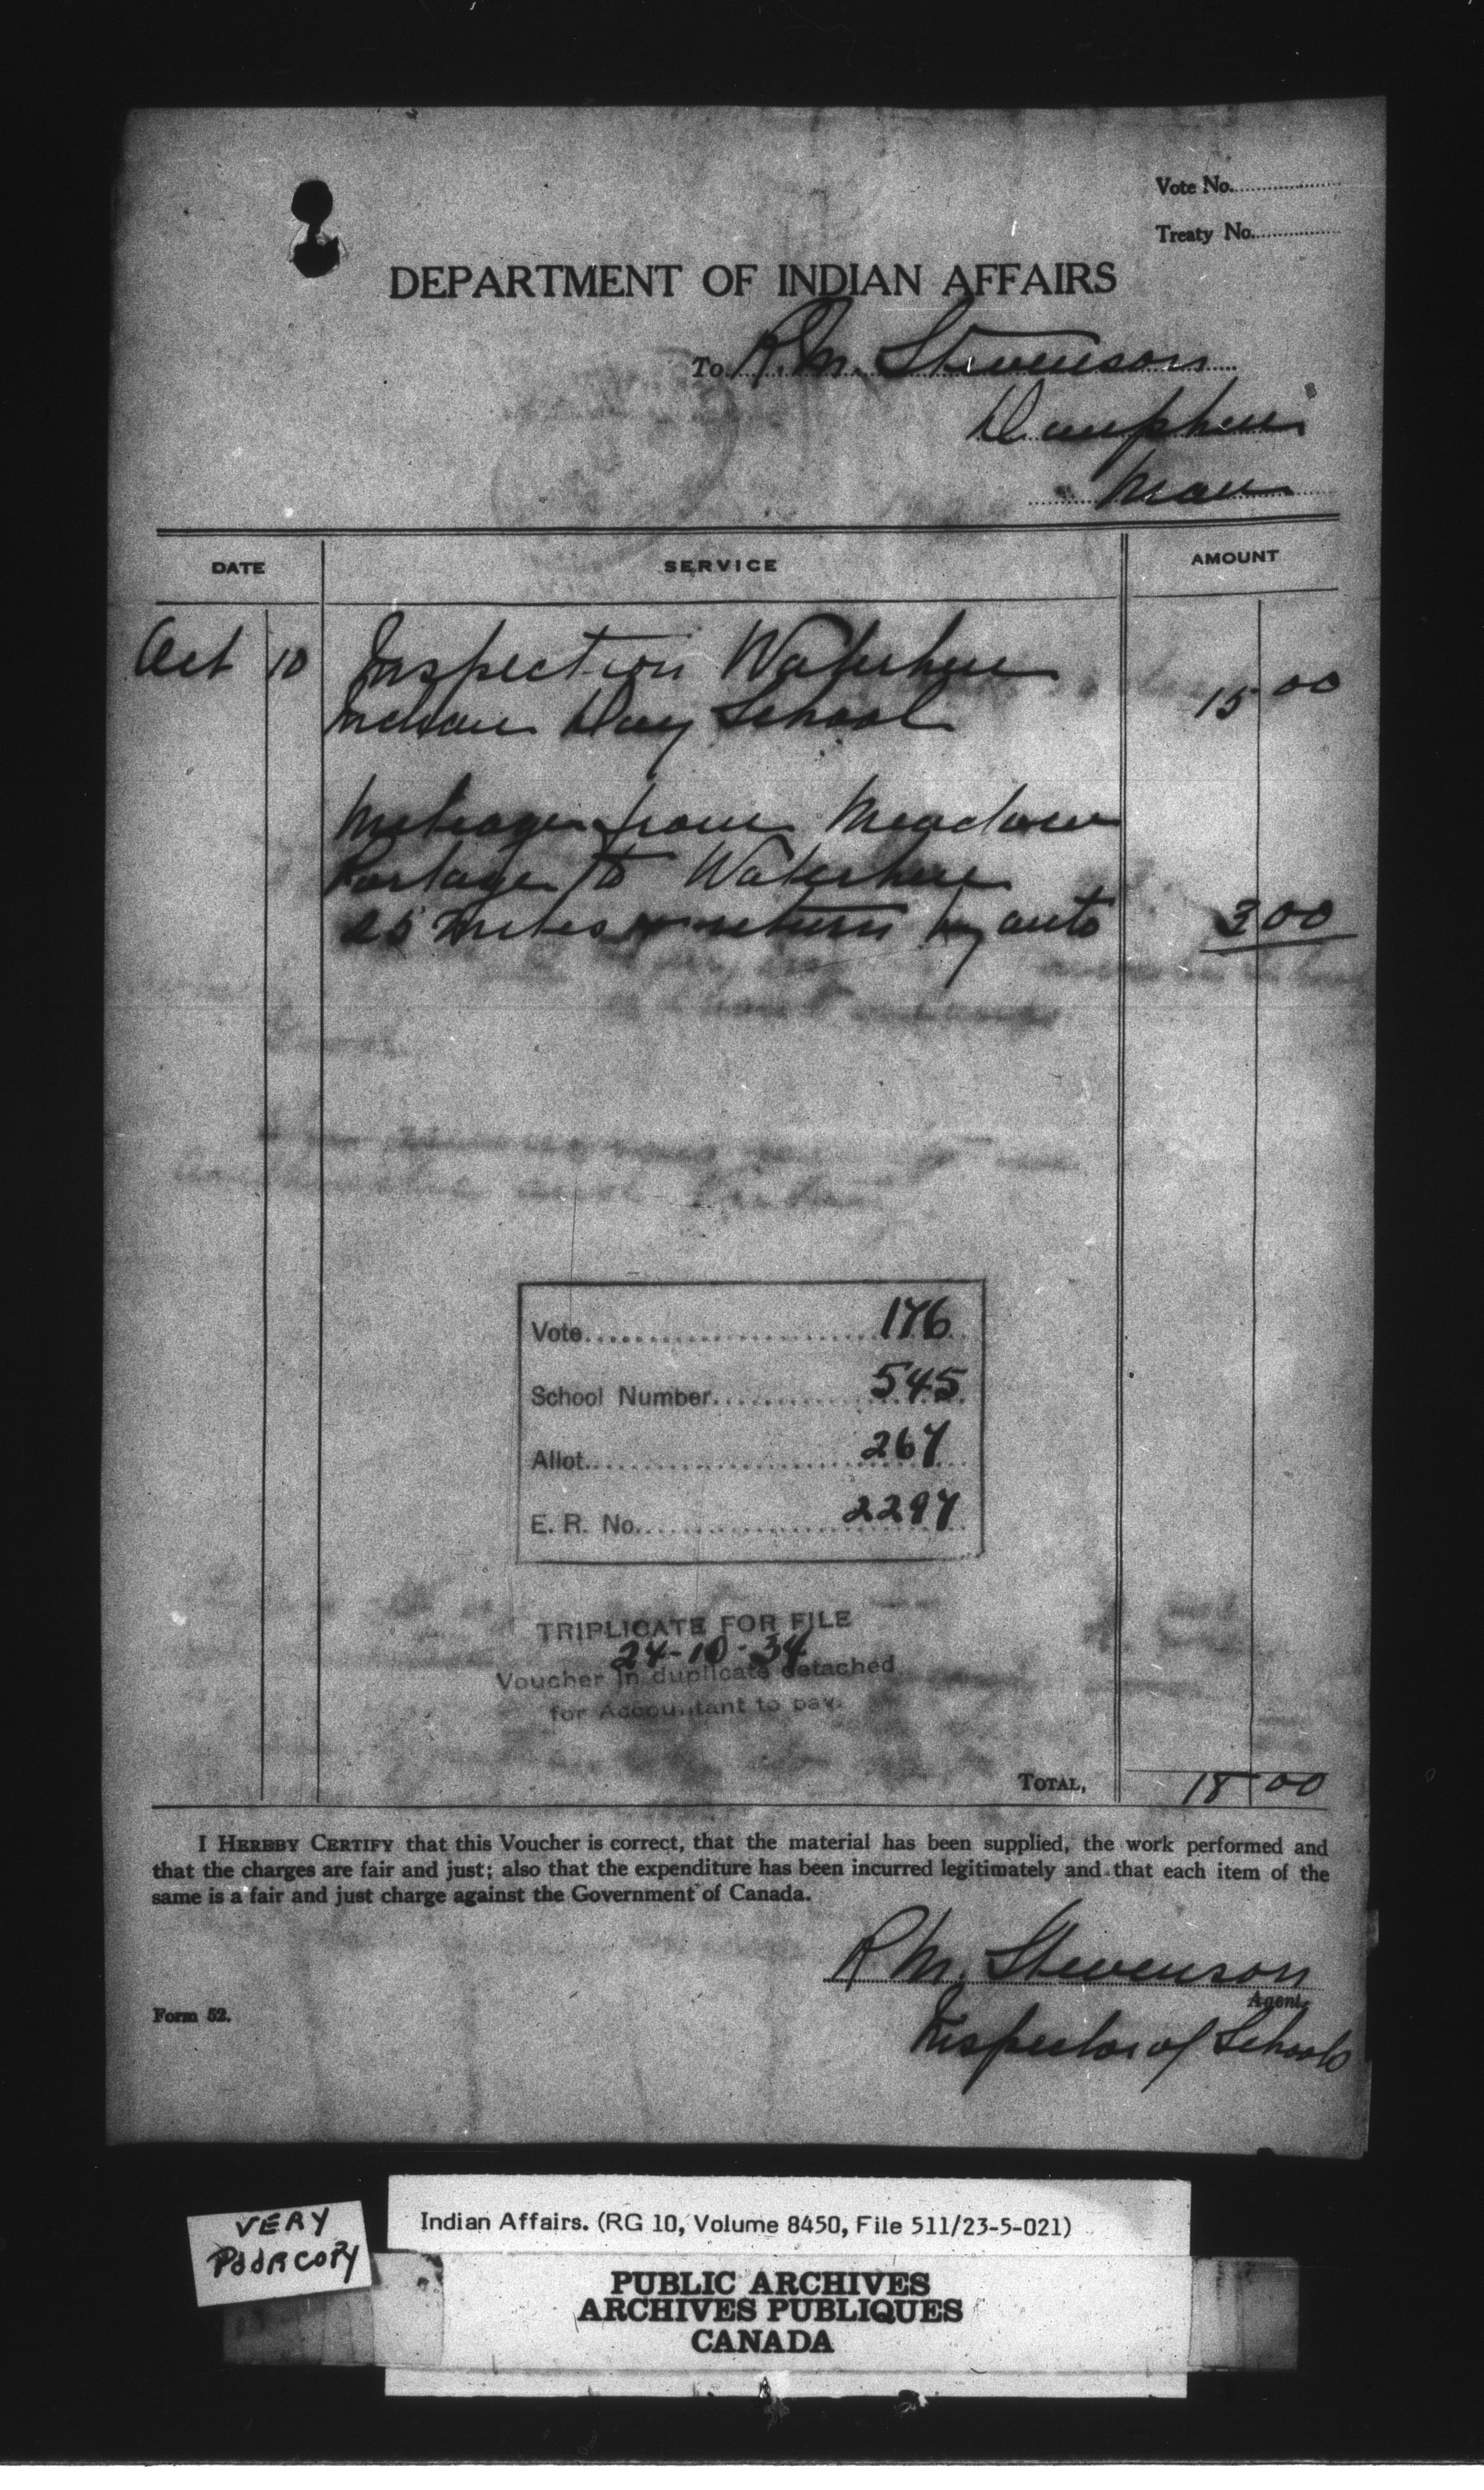 Vote No.
Treaty No.
DEPARTMENT OF INDIAN AFFAIRS
To R. M. Stevenson
Dauphin
Man
DATE SERVICE AMOUNT
Oct 10 Inspection Waterhen
Indian Day School 15 00
Mileage from Meadow
Portage to Waterhen
25 miles return by auto 3 00
Vote 176
School Number 545
Allot. 267
E. R. No. 2297
TRIPLICATE FOR FILE
24-10-34
Voucher in duplicate detached
for Accountant to pay.
TOTAL, 18 00
I HEREBY CERTIFY that this Voucher is correct, that the material has been supplied, the work performed and
that the charges are fair and just; also that the expenditure has been incurred legitimately and that each item of the
same is a fair and just charge against the Government of Canada.
R M. Stevenson
Agent.
Form 52.
Inspector of Schools
VERY
POOR COPY
Indian Affairs. (RG 10, Volume 8450, File 511/23-5-021)
PUBLIC ARCHIVES
ARCHIVES PUBLIQUES
CANADA